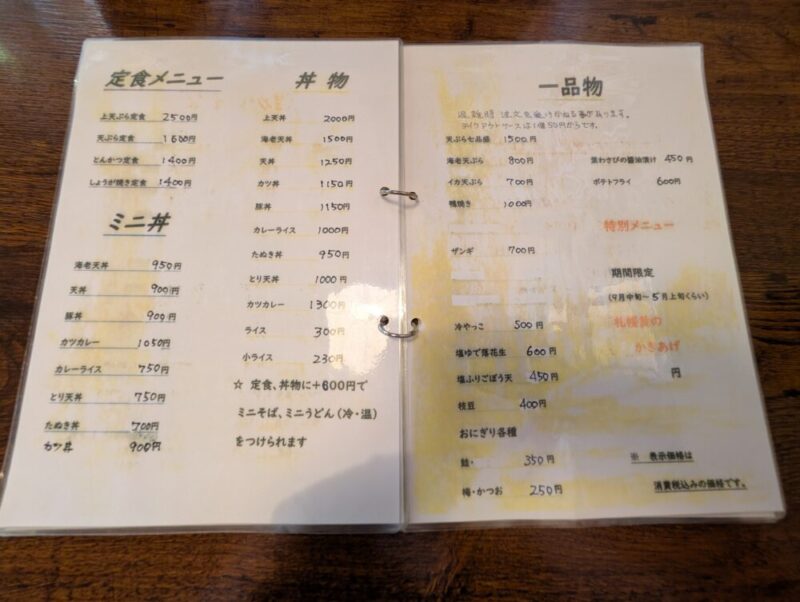 定食メニュー
上天ぷら定食 2500円
天ぷら定食 1600円
とんかつ定食 1400円
しょうが焼き定食 1400円
ミニ丼
海老天丼 950円
天丼 900円
豚丼 900円
カツカレー 1050円
カレーライス 750円
とり天丼 750円
たぬき丼 700円
カツ丼 900円
丼物
上天丼 2000円
海老天丼 1500円
天丼 1250円
カツ丼 1150円
豚丼 1150円
カレーライス 1000円
たぬき丼 950円
とり天丼 1000円
カツカレー 1300円
ライス 300円
小ライス 230円
☆ 定食、丼物に+600円で
ミニそば、ミニうどん(冷・温)
をつけられます
一品物
混雑時 注文を受けかねる事があります。
テイクアウトケースは1個50円からです。
天ぷら七品盛 1500円
海老天ぷら 800円
イカ天ぷら 700円
鴨焼き 1000円
ザンギ 700円
冷やっこ 500円
塩ゆで落花生 600円
塩ふりごぼう天 450円
枝豆 400円
おにぎり各種
鮭・ 350円
梅・かつお 250円
葉わさびの醤油漬け 450円
ポテトフライ 600円
特別メニュー
期間限定
(9月中旬~5月上旬くらい)
札幌黄の
かきあげ
円
※ 表示価格は
消費税込みの価格です。